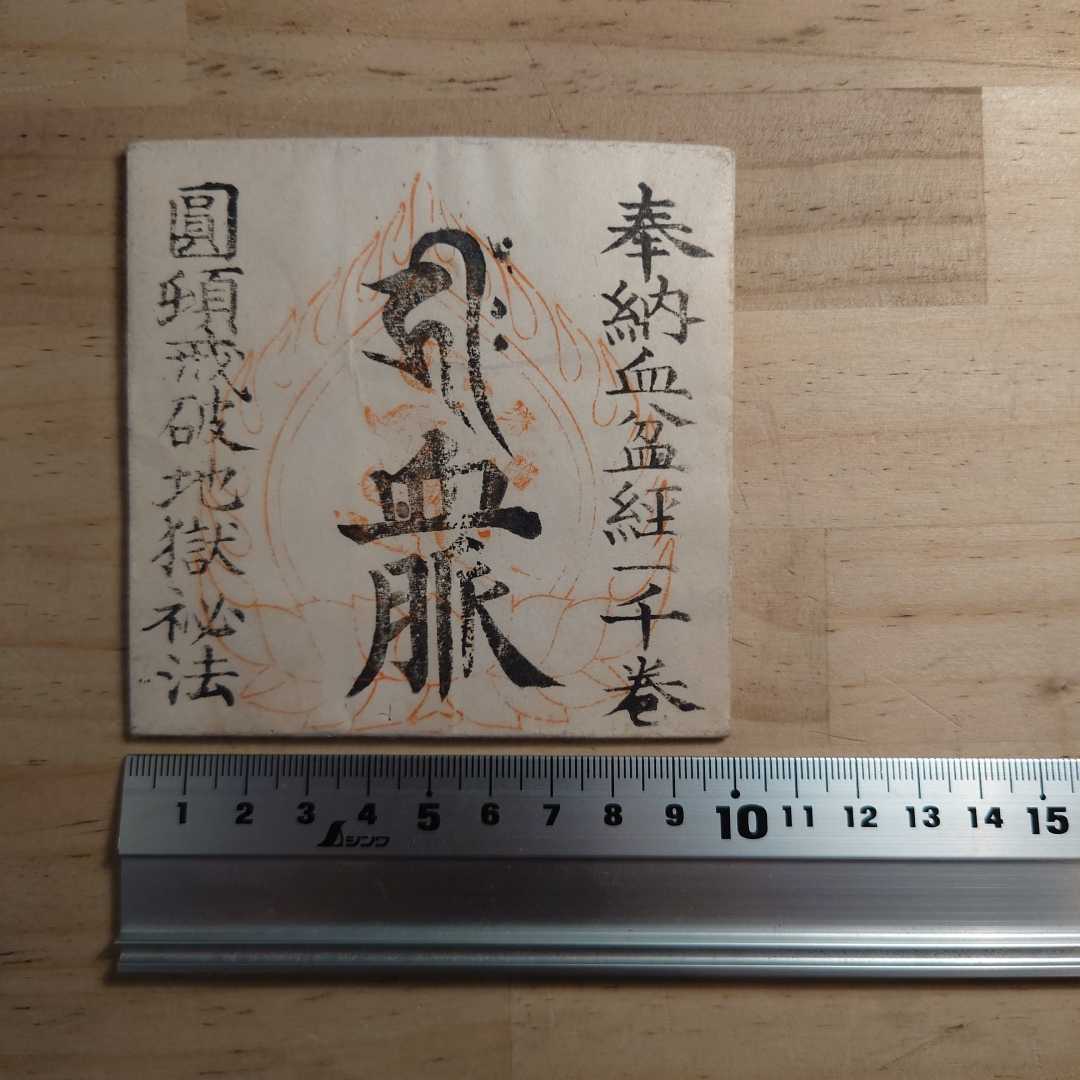 奉納血盆経一千巻
血脈
圓頓戒破地獄祕法
1 2 3 4 5 6 7 8 9 10 11 12 13 14 15
シンワ